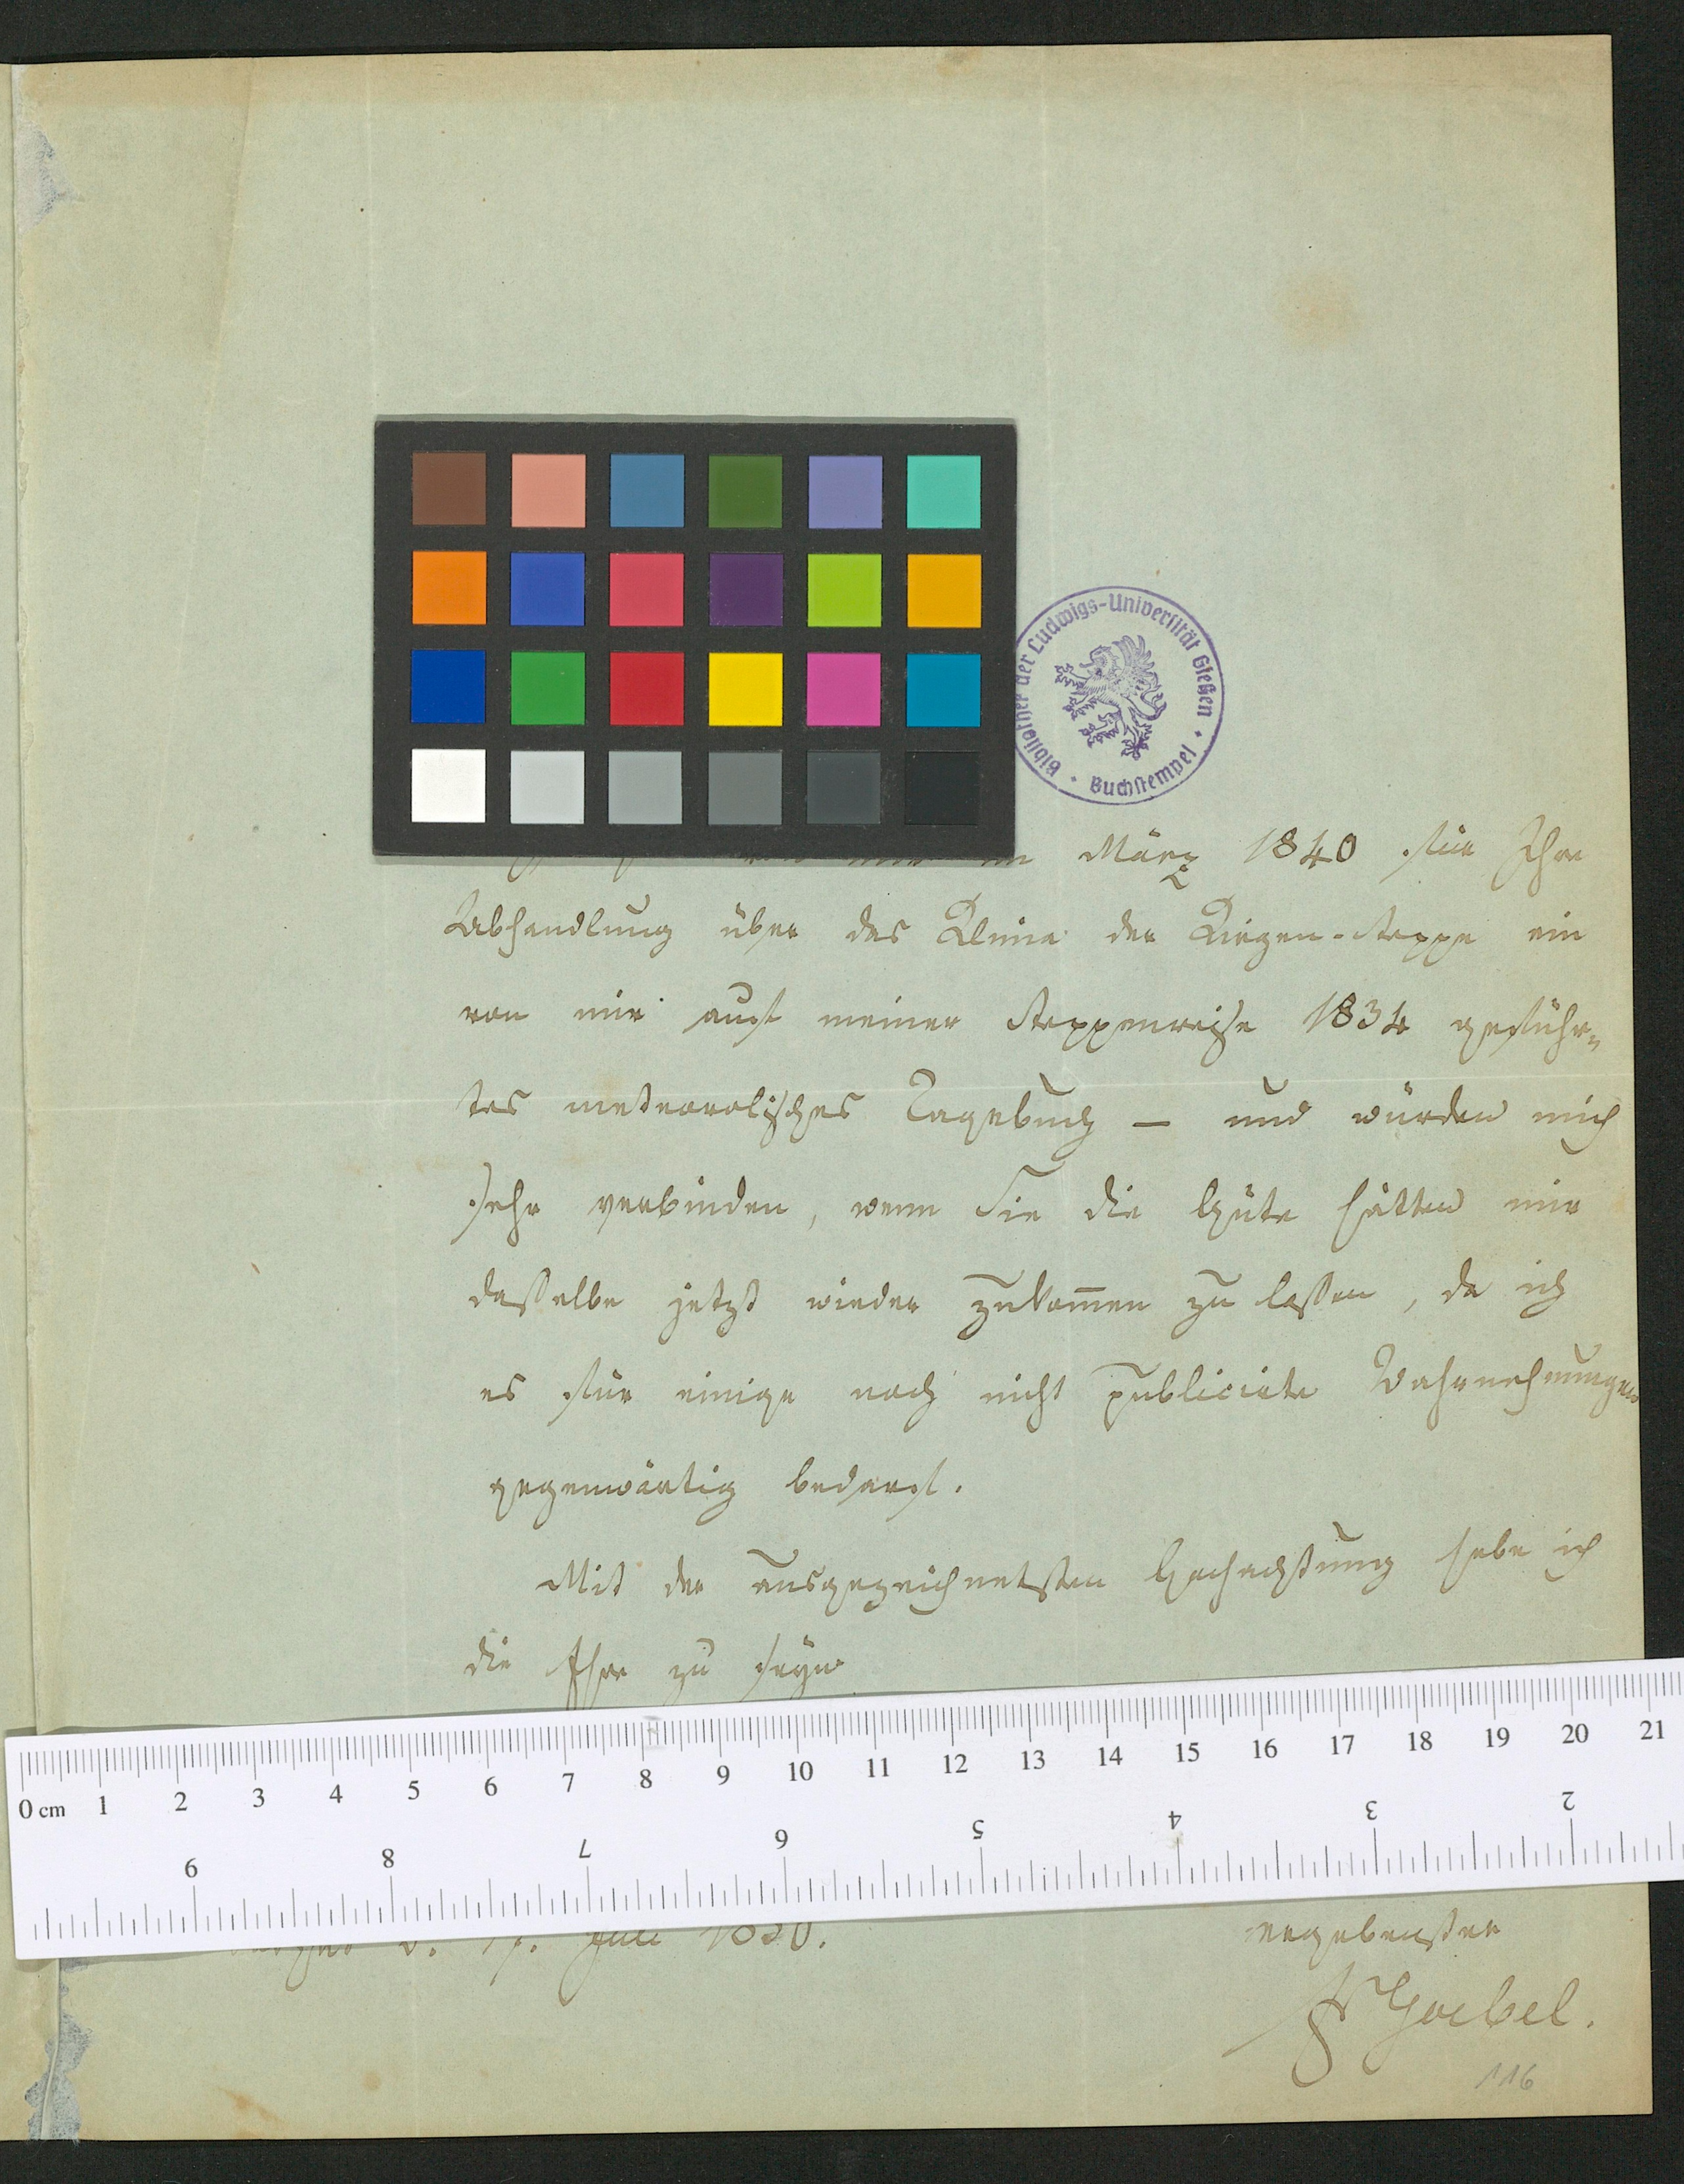 Bibliothek der Ludwigs-Universität Gießen · Buchstempel ·
März 1840 für Ihre
Abhandlung über das Klima der Kirgen-Steppe ein
von mir auf meiner Steppenreise 1834 geführ-
tes meteorolisches Tagebuch — und würden mich
sehr verbinden, wenn Sie die Güte hätten mir
dasselbe jetzt wieder zukom̅en zu lassen, da ich
es für einige noch nicht publicirte Wahrnehmungen
gegenwärtig bedarf.
Mit der ausgezeichnetsten Hochachtung habe ich
die Ehre zu seyn
0 cm 1 2 3 4 5 6 7 8 9 10 11 12 13 14 15 16 17 18 19 20 21
9 8 7 6 5 4 3 2
Juli 1850.
ergebenster
Goebel.
116